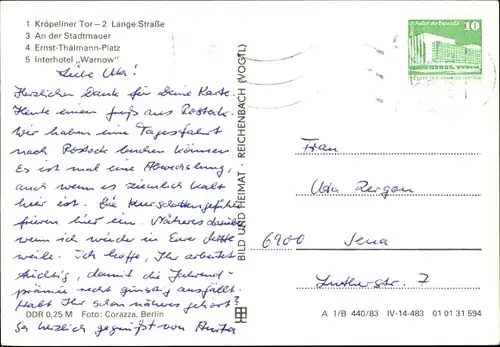 1 Kröpeliner Tor – 2 Lange Straße
3 An der Stadtmauer
4 Ernst-Thälmann-Platz
5 Interhotel „Warnow"
Liebe Uta!
Herzlichen Dank für Deine Karte.
Heute einen Gruß aus Rostock.
Wir haben eine Tagesfahrt
nach Rostock buchen können
Es ist mal eine Abwechslung,
auch wenn es ziemlich kalt
hier ist. Die
frieren hier ein. Näheres darüber
wenn ich wieder in Eurer Mitte
weile. Ich hoffe, Ihr arbeitet
tüchtig, damit die Jahresend-
prämie nicht günstig ausfällt.
Habt Ihr schon näheres gehört?
Sei herzlich gegrüßt von Anita
DDR 0,25 M Foto: Corazza, Berlin
BILD UND HEIMAT · REICHENBACH (VOGTL)
Palast der Republik
10
Frau
Uta
6900 Jena
Lutherstr. 7
A 1/B 440/83 IV-14-483 01 01 31 594